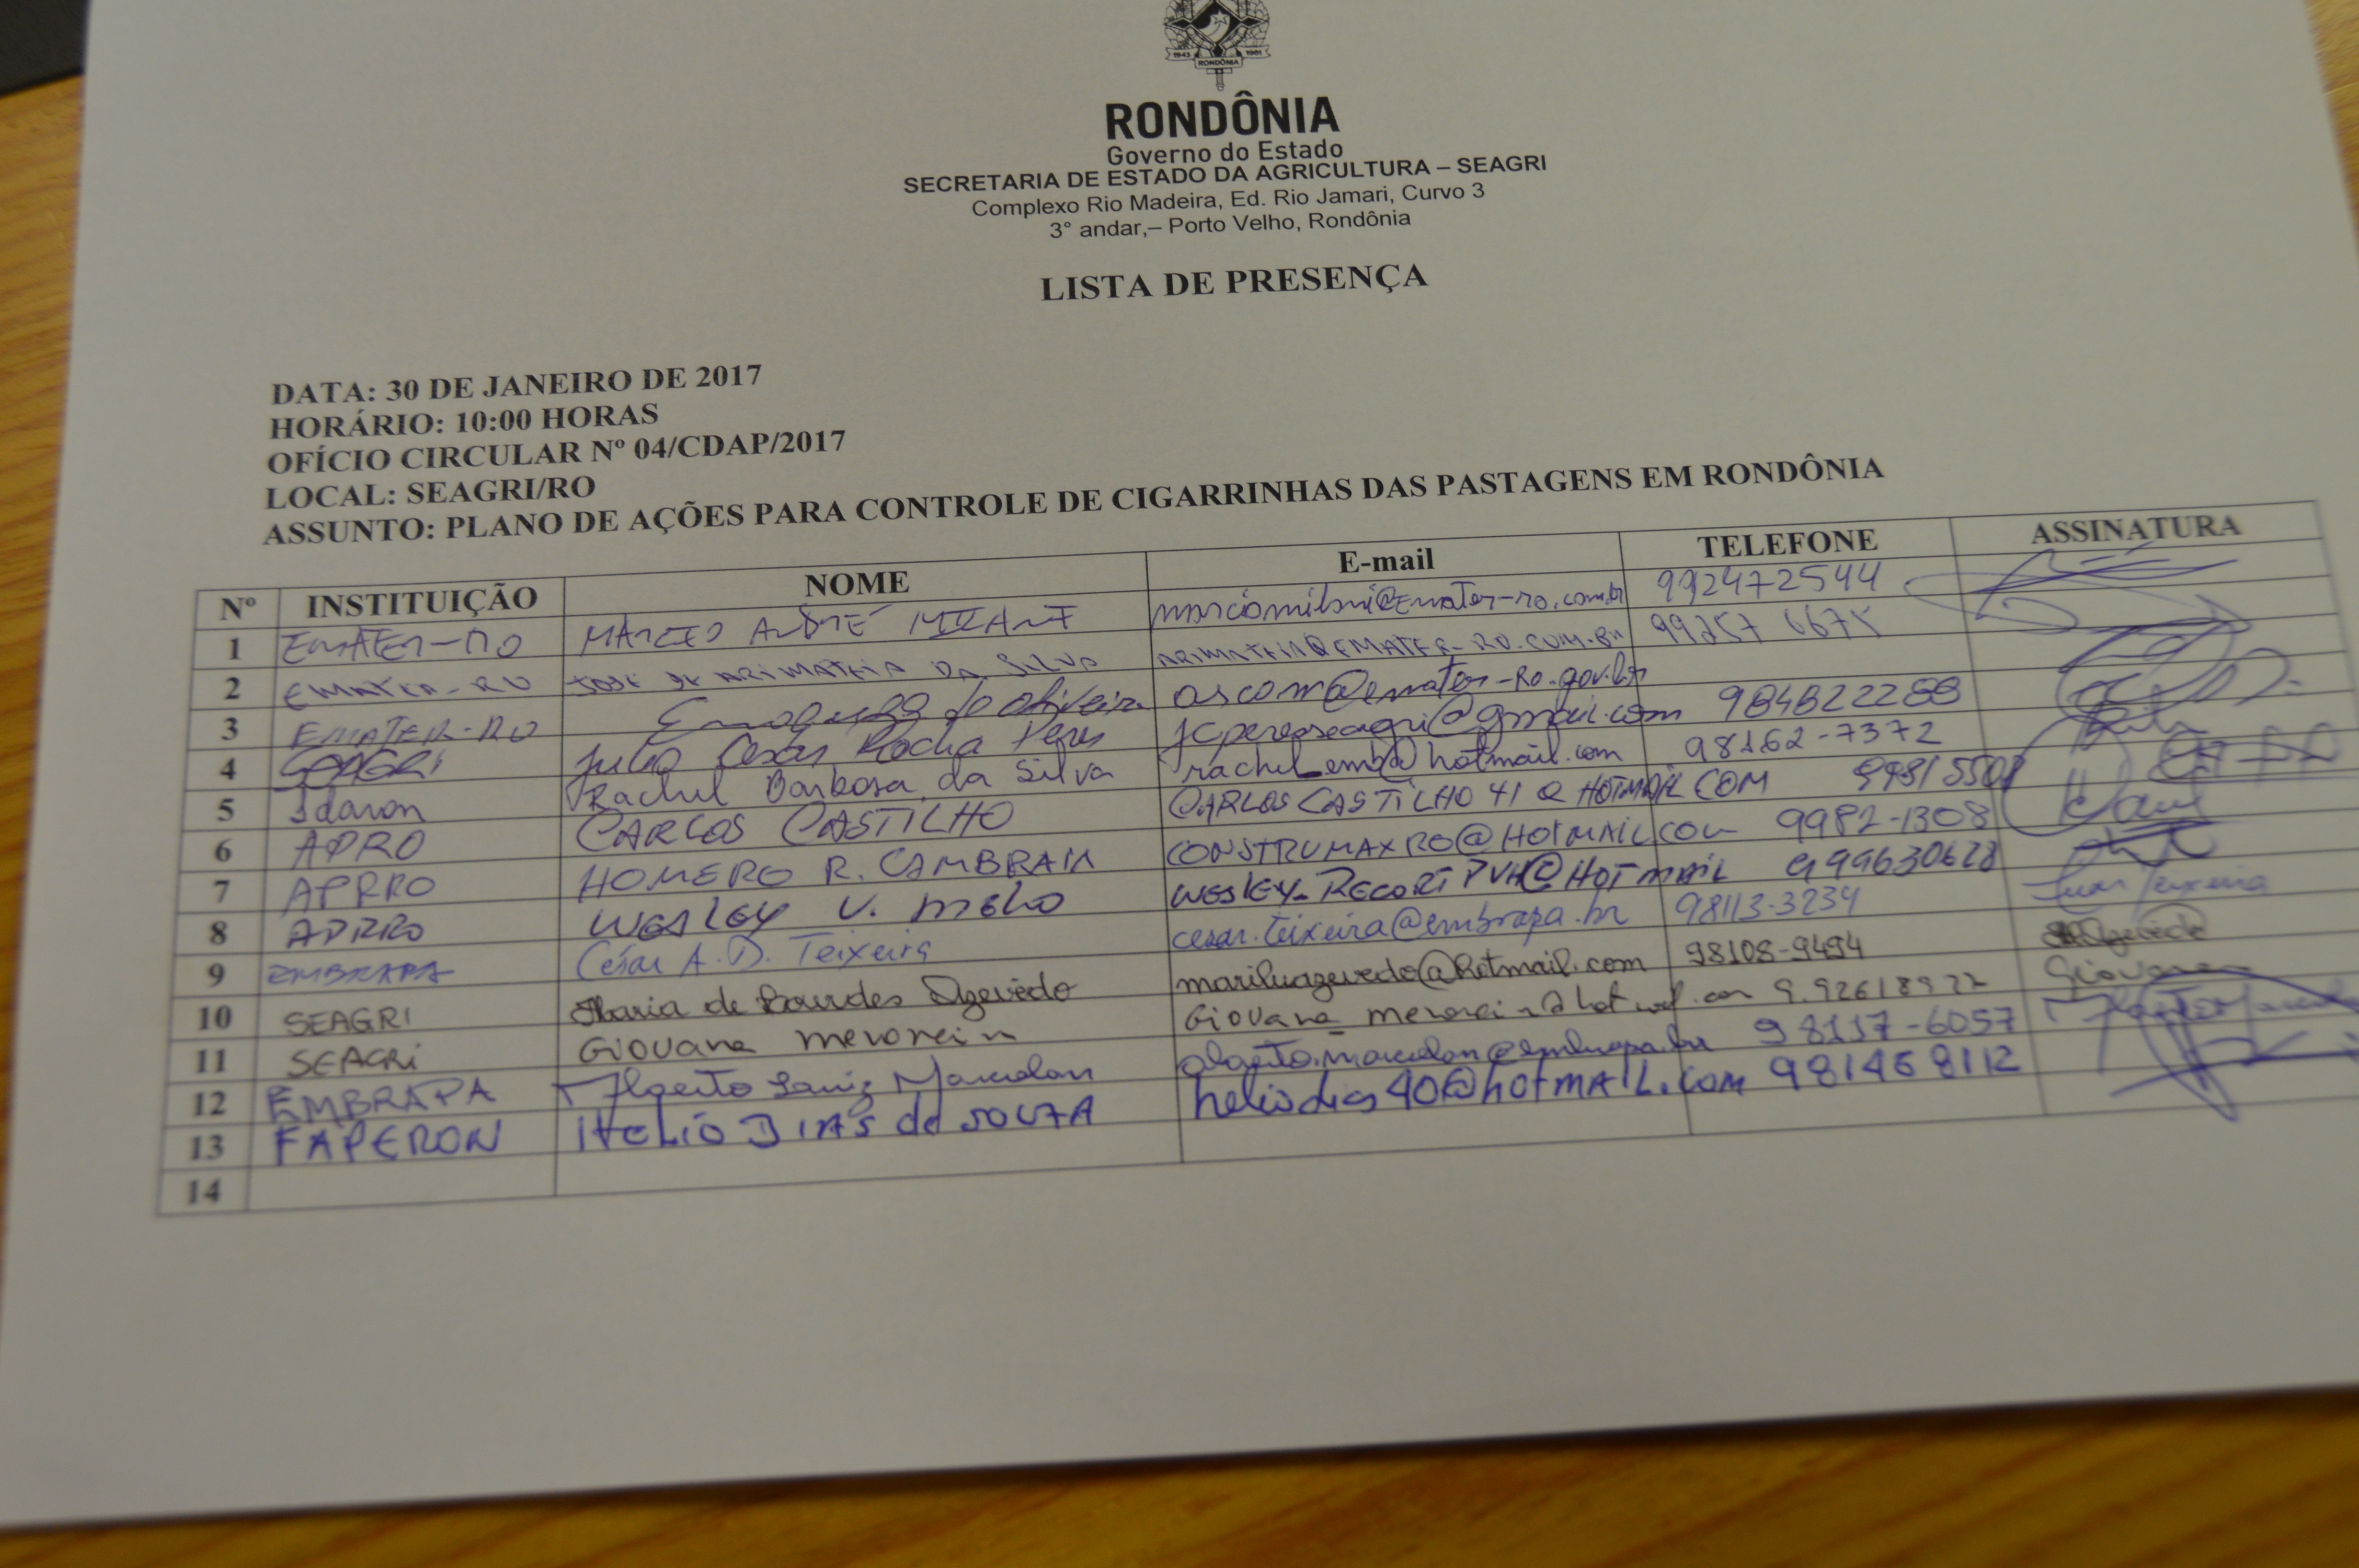 1943 1981
RONDÔNIA
RONDÔNIA
Governo do Estado
SECRETARIA DE ESTADO DA AGRICULTURA – SEAGRI
Complexo Rio Madeira, Ed. Rio Jamari, Curvo 3
3° andar,– Porto Velho, Rondônia
LISTA DE PRESENÇA
DATA: 30 DE JANEIRO DE 2017
HORÁRIO: 10:00 HORAS
OFÍCIO CIRCULAR Nº 04/CDAP/2017
LOCAL: SEAGRI/RO
ASSUNTO: PLANO DE AÇÕES PARA CONTROLE DE CIGARRINHAS DAS PASTAGENS EM RONDÔNIA
Nº INSTITUIÇÃO NOME E-mail TELEFONE ASSINATURA
1 EMATER-RO MÁRCIO ANDRÉ MILANI marciomilani@emater-ro.com.br 992472544
2 EMATER-RO JOSÉ DE ARIMATEIA DA SILVA ARIMATEIA@EMATER-RO.COM.BR
3 EMATER-RO de Oliveira ascom@emater-Ro.gov.br
4 SEAGRI Julio Cesar Rocha Peres jcperesseagri@gmail.com 984822288
5 Idaron Rachel Barbosa da Silva rachel_emb@hotmail.com 98162-7372
6 APRO CARLOS CASTILHO CARLOSCASTILHO41@HOTMAIL COM
7 APRRO HOMERO R. CAMBRAIA CONSTRUMAXRO@HOTMAIL.COM 9982-1308
8 APRRO WESLEY V. Melo WESLEY_RECORTPVH@HOTMAIL 999630628
9 EMBRAPA César A. D. Teixeira cesar.teixeira@embrapa.br 98113-3234 Teixeira
10 SEAGRI Maria de Lourdes Azevêdo mariluazevedo@hotmail.com 98108-9494 Azevêdo
11 SEAGRI Giovana 9.92618922 Giovana
12 EMBRAPA Alaerto Luiz Marcolan alaerto.marcolan@embrapa.br 98117-6057 Alaerto Marcolan
13 FAPERON HELIO DIAS de SOUZA heliodias40@hotmAIL.com 981468112
14